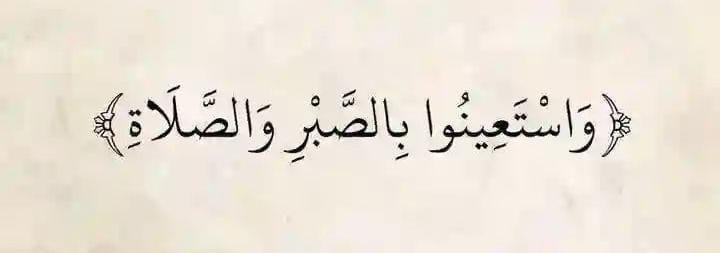 ﴿وَاسْتَعِينُوا بِالصَّبْرِ وَالصَّلَاةِ﴾